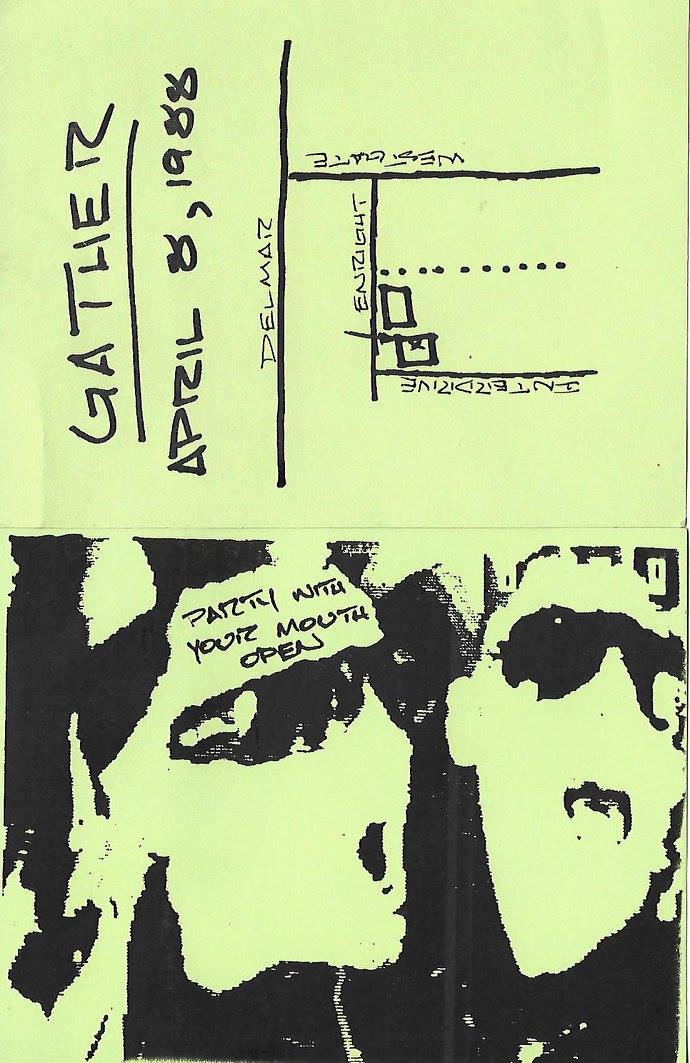 GATHER
APRIL 8, 1988
DELMAR
ENRIGHT
WESTGATE
INTERDRIVE
PARTY WITH
YOUR MOUTH
OPEN